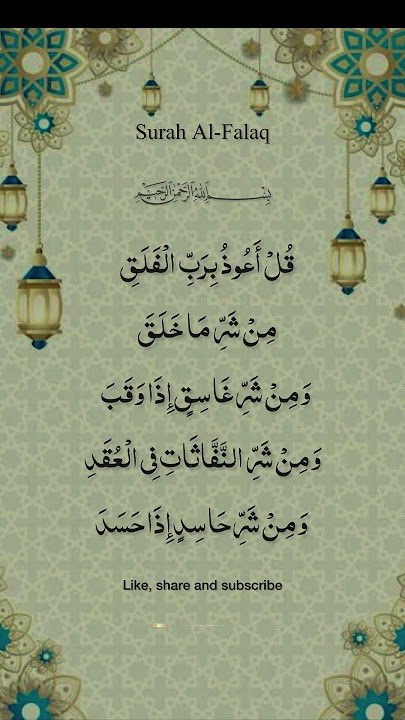 Surah Al-Falaq
بِسْمِ اللَّهِ الرَّحْمَٰنِ الرَّحِيمِ
قُلْ أَعُوذُ بِرَبِّ الْفَلَقِ
مِنْ شَرِّ مَا خَلَقَ
وَمِنْ شَرِّ غَاسِقٍ إِذَا وَقَبَ
وَمِنْ شَرِّ النَّفَّاثَاتِ فِي الْعُقَدِ
وَمِنْ شَرِّ حَاسِدٍ إِذَا حَسَدَ
Like, share and subscribe